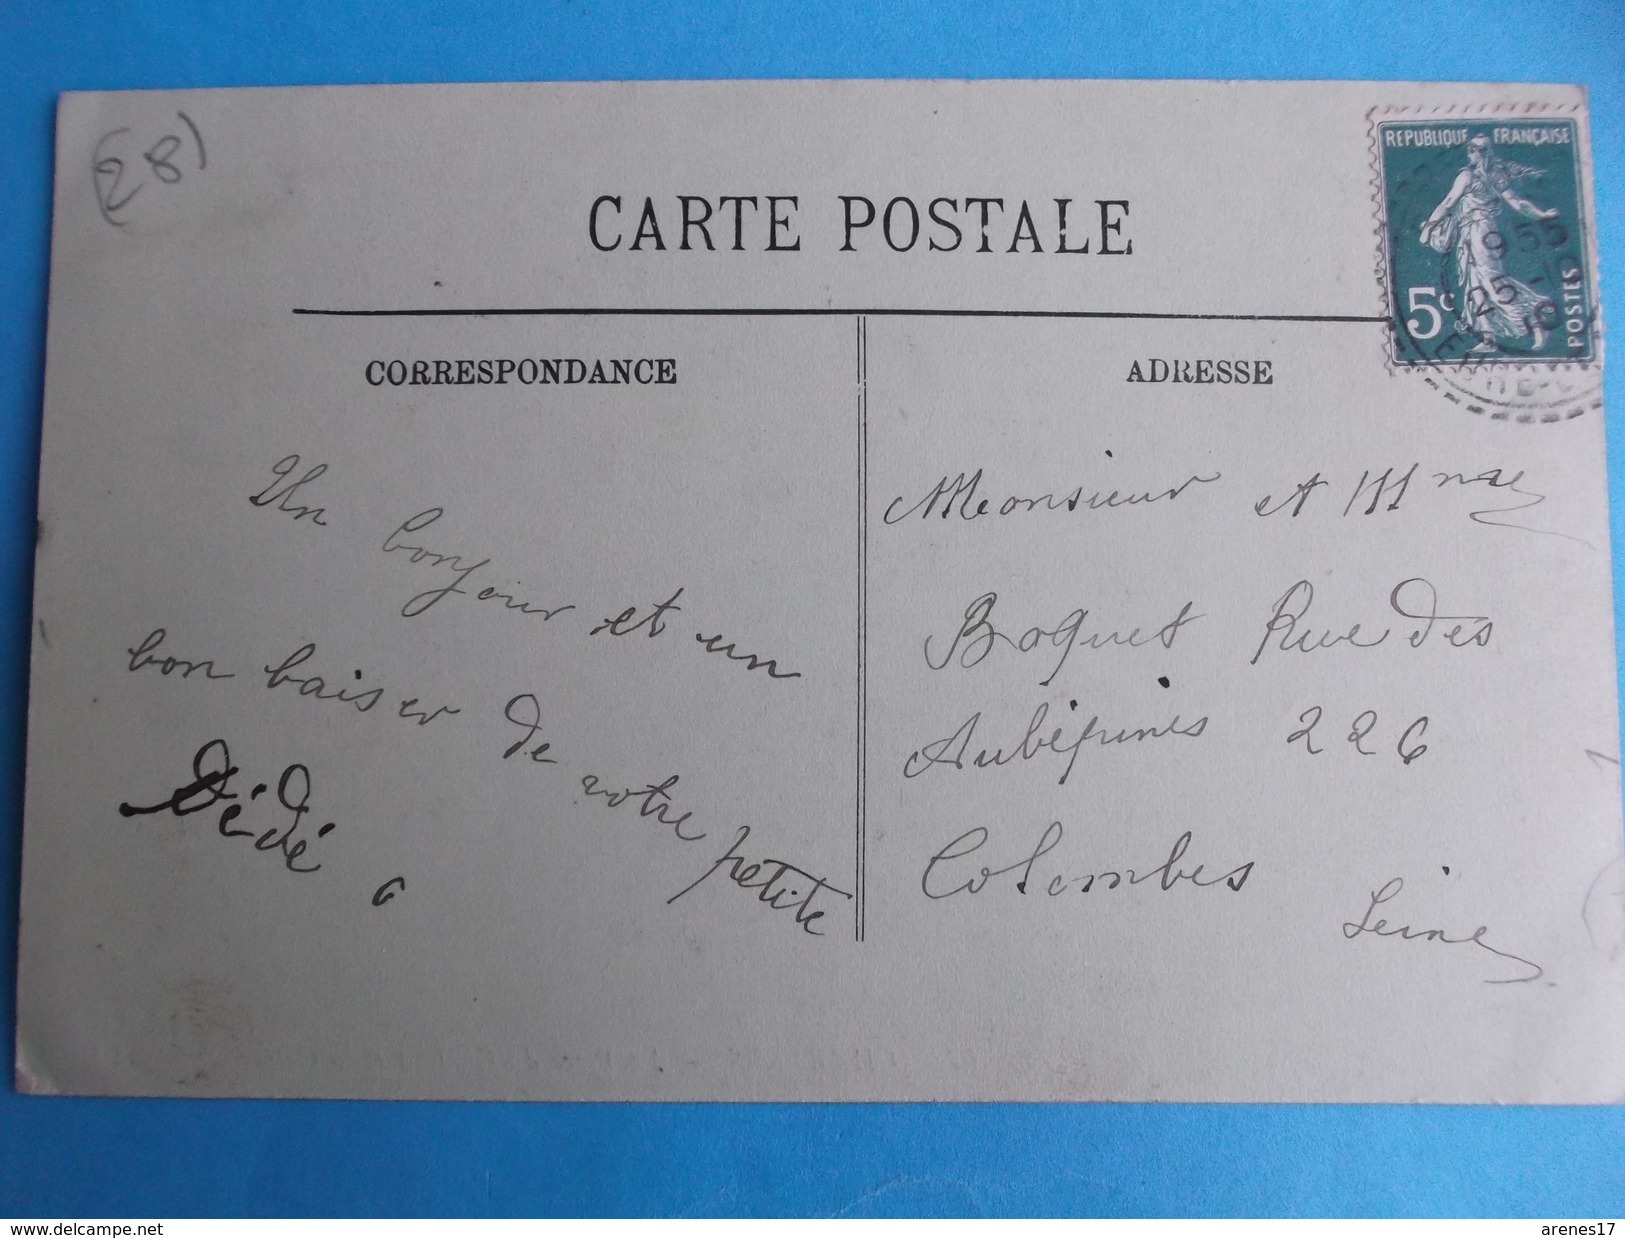 (28)
CARTE POSTALE
REPUBLIQUE FRANÇAISE
5c
POSTES
9 55
25
CORRESPONDANCE
Un bonjour et un
bon baiser de votre petite
Dédé
ADRESSE
Monsieur et Mme
Boquet Rue des
Aubépines 226
Colombes
Seine
www.delcampe.net
arenes17